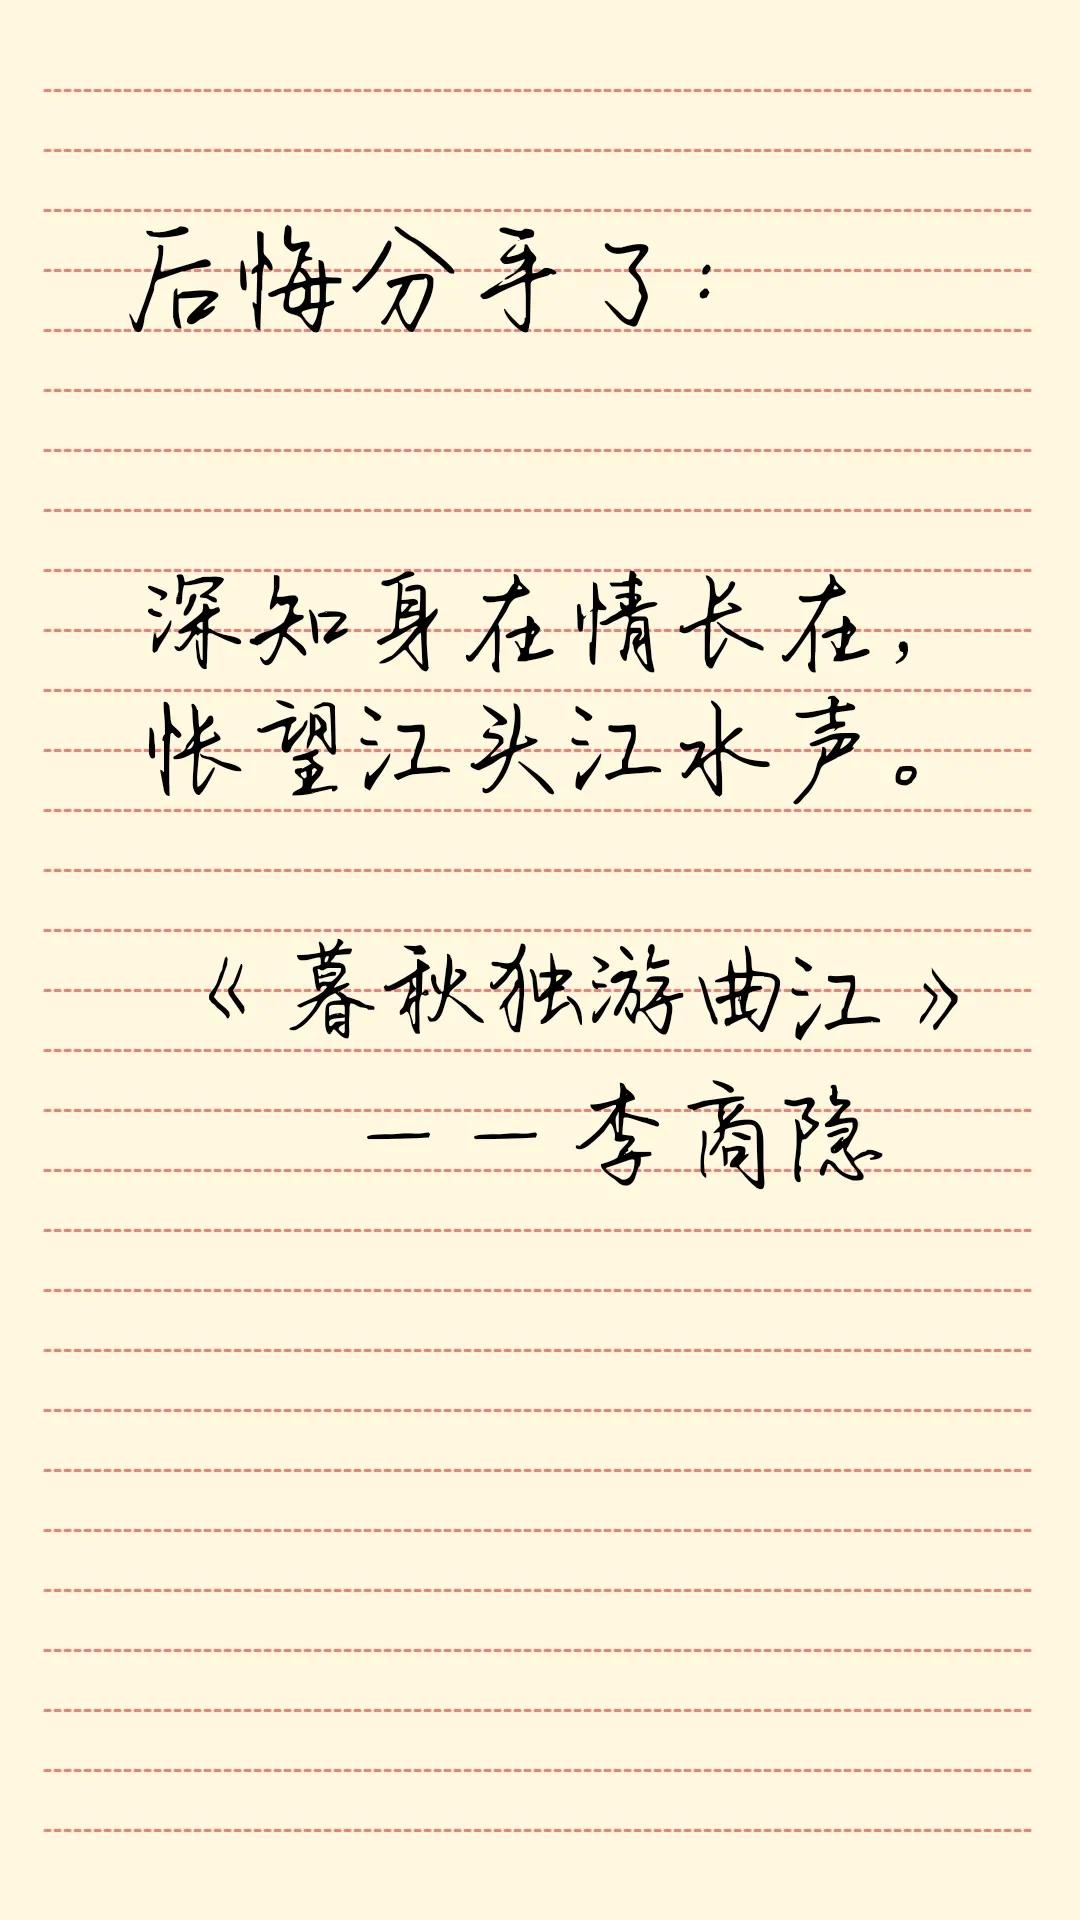 后悔分手了：
深知身在情长在，
怅望江头江水声。
《暮秋独游曲江》
——李商隐